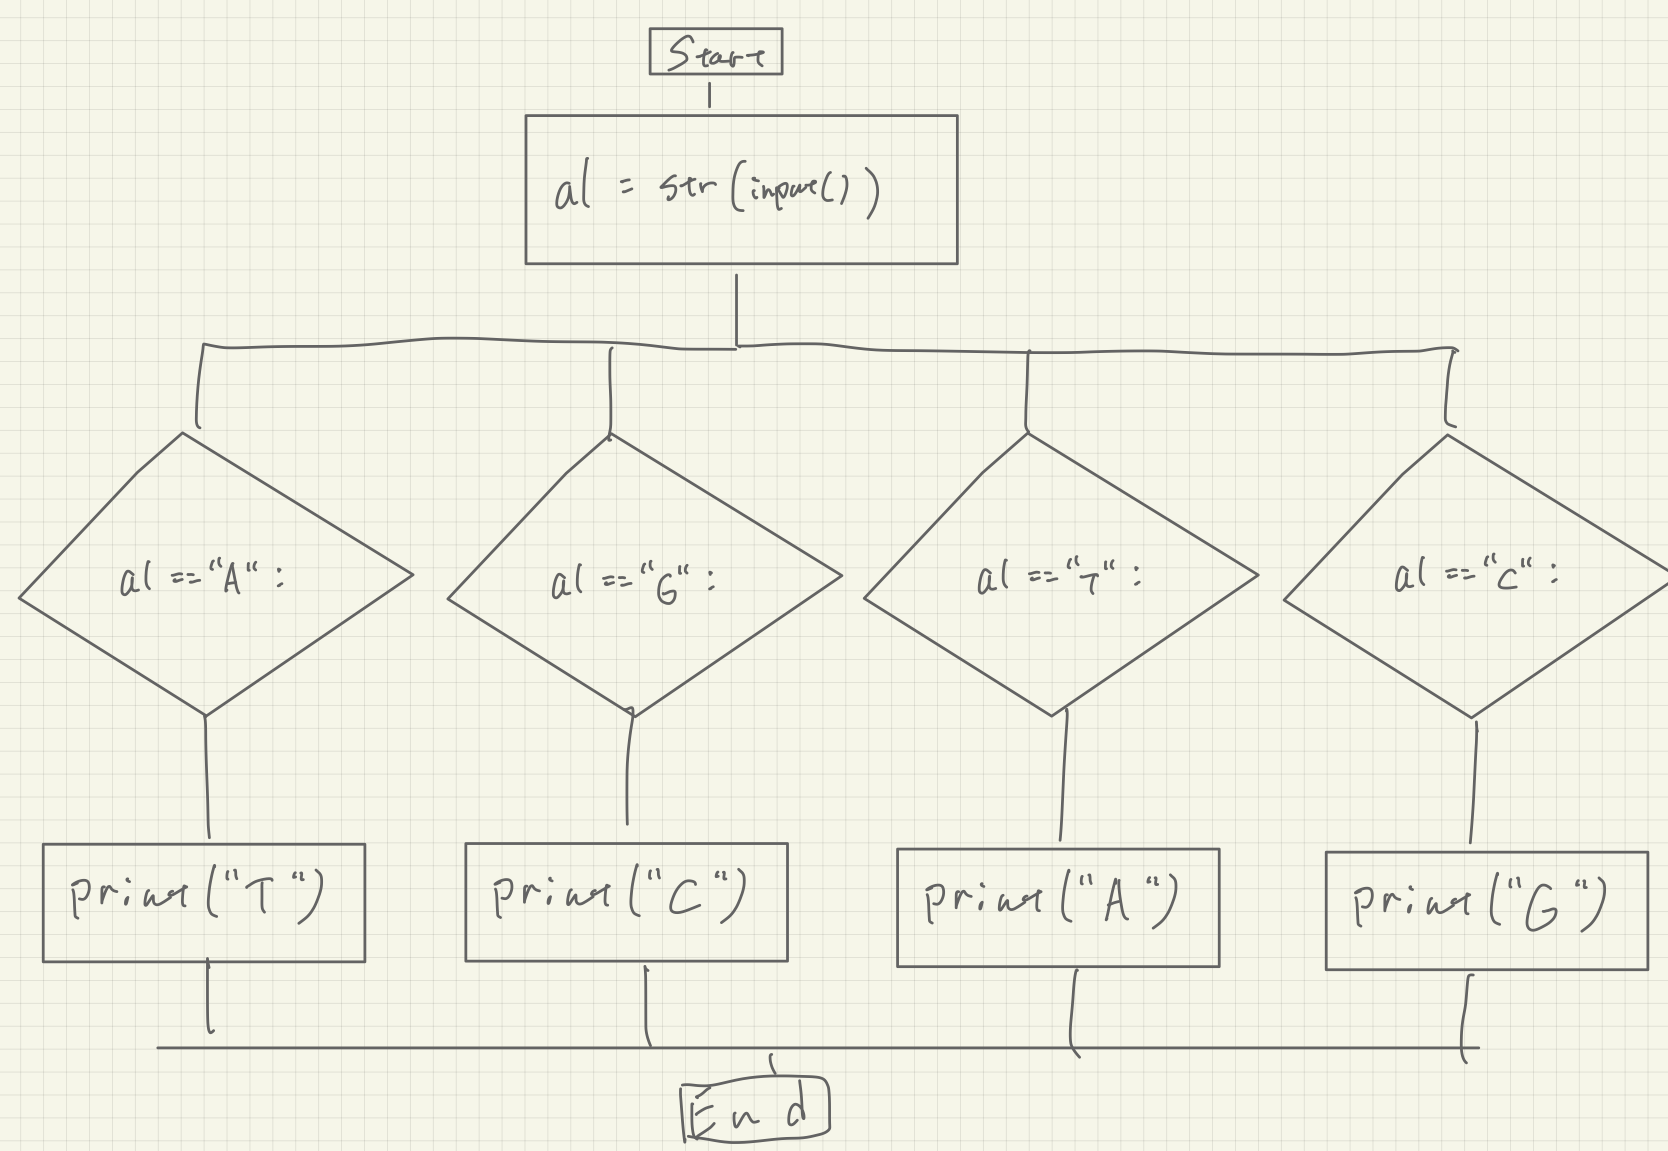 Start
al = str(input())
al == "A" :
al == "G" :
al == "T" :
al == "C" :
print("T")
print("C")
print("A")
print("G")
End